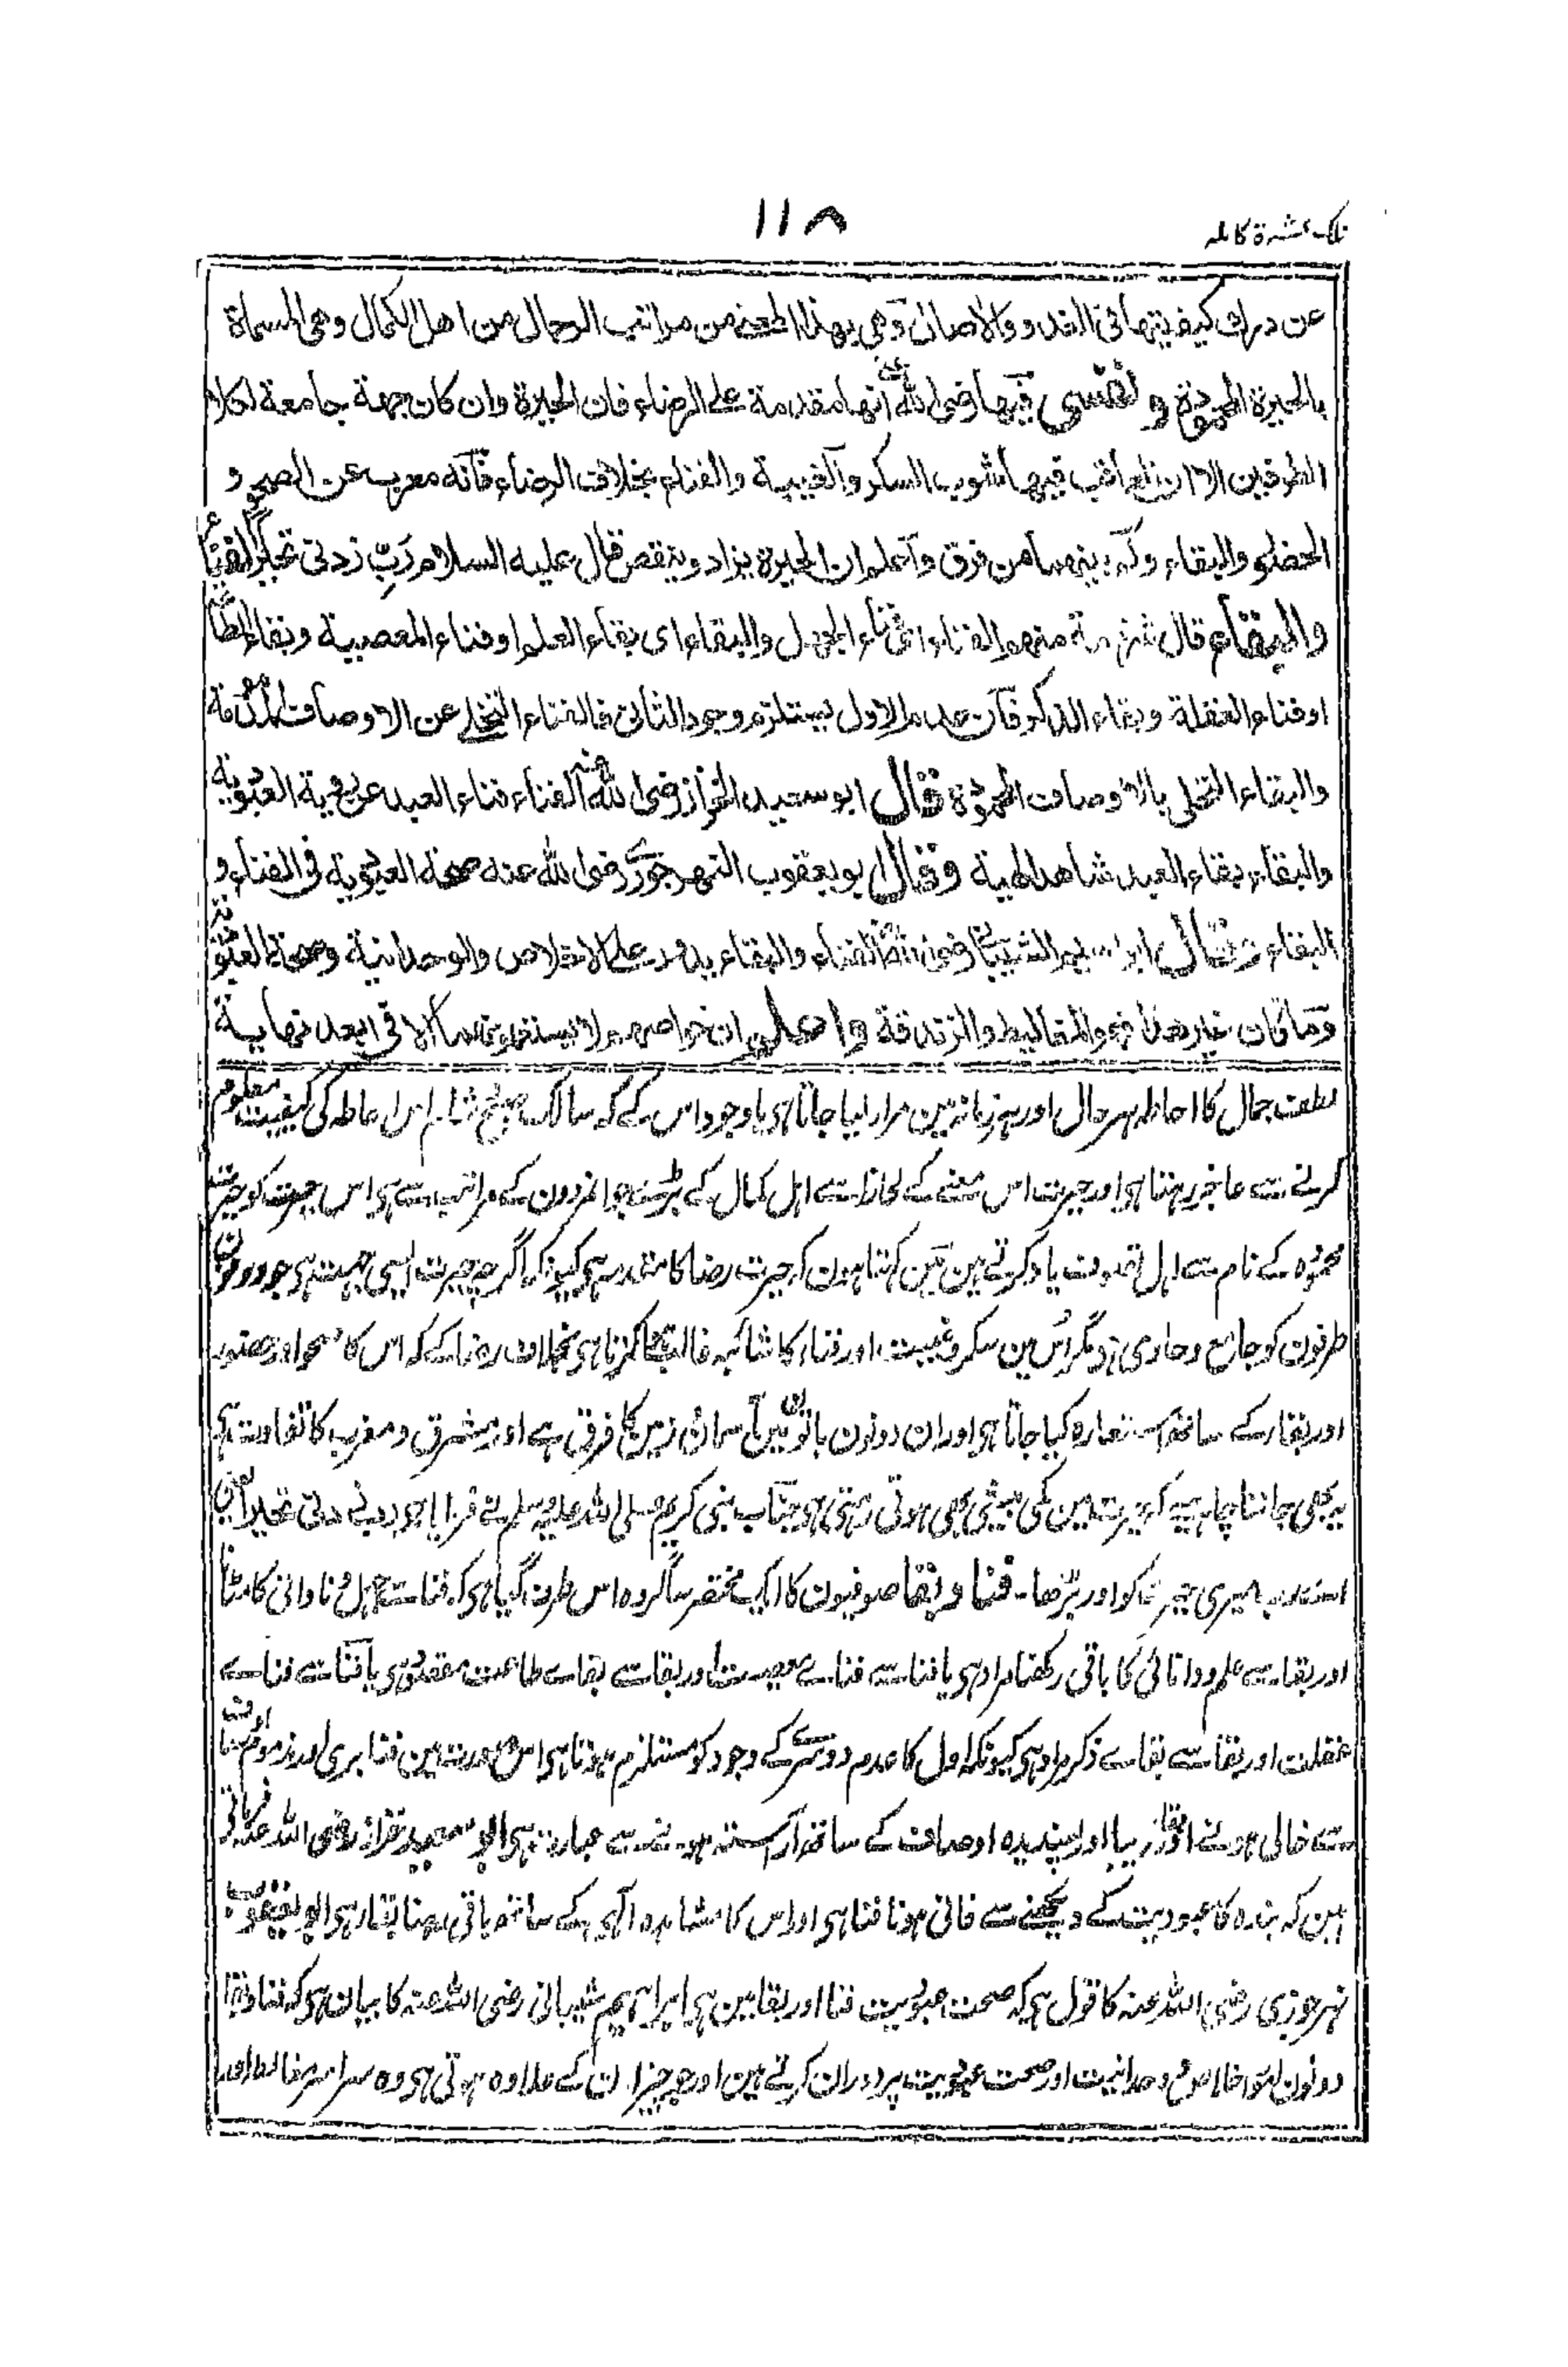 تلك عشرة كاملہ
۱۱۸
عن درك كيفيتها فى الغدو والاصال وهى بهذا المعنے من مراتب الرجال من اهل الكمال وهى المسماة
بالحيرة المحمودة و لنفسى فيها رضى الله عنه انها مقدمة على الرضاء فان الحيرة وان كان جهة جامعة لكلا
الطرفين الا ان الغالب فيها شوب السكر والغيبة والفناء بخلاف الرضاء فانه معرب عن الصحو و
الحضور والبقاء وكم بينهما من فرق واعلم ان الحيرة يزاد وينقص قال عليه السلام رَبِّ زدنى تحيراً الفناء
والبقاء قال شرذمة منهم الفناء اى فناء الجهل والبقاء اى بقاء العلم او فناء المعصية وبقاء الطاعة
او فناء الغفلة وبقاء الذكر فان عدم الاول يستلزم وجود الثانى فالفناء التخلے عن الاوصاف المذمومة
والبقاء التحلى بالاوصاف المحمودة قال ابو سعيد الخراز رضى الله عنه الفناء فناء العبد عن رؤية العبودية
والبقاء بقاء العبد شاهد الهية وقال ابو يعقوب النهرجوري رضى الله عنه صحة العبودية فى الفناء و
البقاء وقال ابراهيم الشيبانى رضى الله عنه الفناء والبقاء يدور على الاخلاص والوحدانية وصحة العبودية
وما كان غير هذا فهو المغاليط والزندقة واعلم ان خواصهم لا يستعملونهما الا فى ابعد نهاية
لطف جمال کا احاطہ ہر حال اور ہر زمانہ مین مراد لیا جاتا ہی باوجود اس کے کہ سالک صبح شام اس احاطہ کی کیفیت معلوم
کرنے سے عاجز رہتا ہی اور حیرت اس معنے کے لحاظ سے اہل کمال کے بڑے جوانمردون کے مراتب سے ہی اس حیرت کو حیرت
محمودہ کے نام سے اہل تصوف یاد کرتے ہین مین کہتا ہون کہ حیرت رضا کا مقدمہ ہی کیونکہ اگرچہ حیرت ایسی جہت ہی جو دونون
طرفون کو جامع و حاوی ہو مگر اُس مین سکر و غیبت اور فنا کا شائبہ غالب ہوا کرتا ہی بخلاف رضا کے کہ اس کا صحو اور حضور
اور بقا کے ساتھ استعارہ کیا جاتا ہی اور ان دونون باتون مین آسمان زمین کا فرق ہے اور مشرق و مغرب کا تفاوت ہی
یہ بھی جاننا چاہیے کہ حیرت مین کمی بیشی بھی ہوتی رہتی ہی جناب نبی کریم صلی اللہ علیہ وسلم نے فرمایا ہی رب زدنی تحیراً یعنی
اے خدا میری حیرت کو اور بڑھا۔ فنا و بقا صوفیون کا ایک مختصر سا گروہ اس طرف گیا ہی کہ فنا سے جہل و نادانی کا مٹانا
اور بقا سے علم و دانائی کا باقی رکھنا مراد ہی یا فنا سے فناے معصیت اور بقا سے بقاے طاعت مقصود ہی یا فنا سے فناے
غفلت اور بقا سے بقاے ذکر مراد ہی کیونکہ اول کا عدم دوسرے کے وجود کو مستلزم ہوتا ہی اس صورت مین فنا بری اور مذموم اوصاف
سے خالی ہونے اور بقا زیبا اور پسندیدہ اوصاف کے ساتھ آراستہ ہونے سے عبارت ہی ابو سعید خراز رضی اللہ عنہ فرماتے
ہین کہ بندہ کا عبودیت کے دیکھنے سے فانی ہونا فنا ہی اور اس کا مشاہدہ الٰہی کے ساتھ باقی رہنا بقا ہی ابو یعقوب
نہرجوری رضی اللہ عنہ کا قول ہی کہ صحت عبودیت فنا اور بقا مین ہی ابراہیم شیبانی رضی اللہ عنہ کا بیان ہی کہ فنا و بقا
دونون اخلاص وحدانیت اور صحت عبودیت پر دوران کرتے ہین اور جو چیز ان کے علاوہ ہوتی ہی وہ سراسر مغالطہ اور